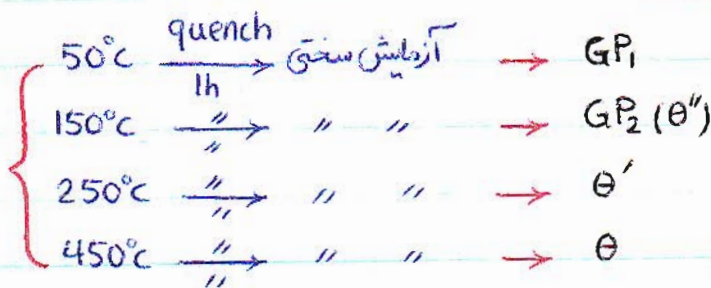 50°C quench 1h → آزمایش سختی → GP₁
150°C 〃 〃 → 〃 〃 → GP₂ (θ″)
250°C 〃 〃 → 〃 〃 → θ′
450°C 〃 〃 → 〃 〃 → θ